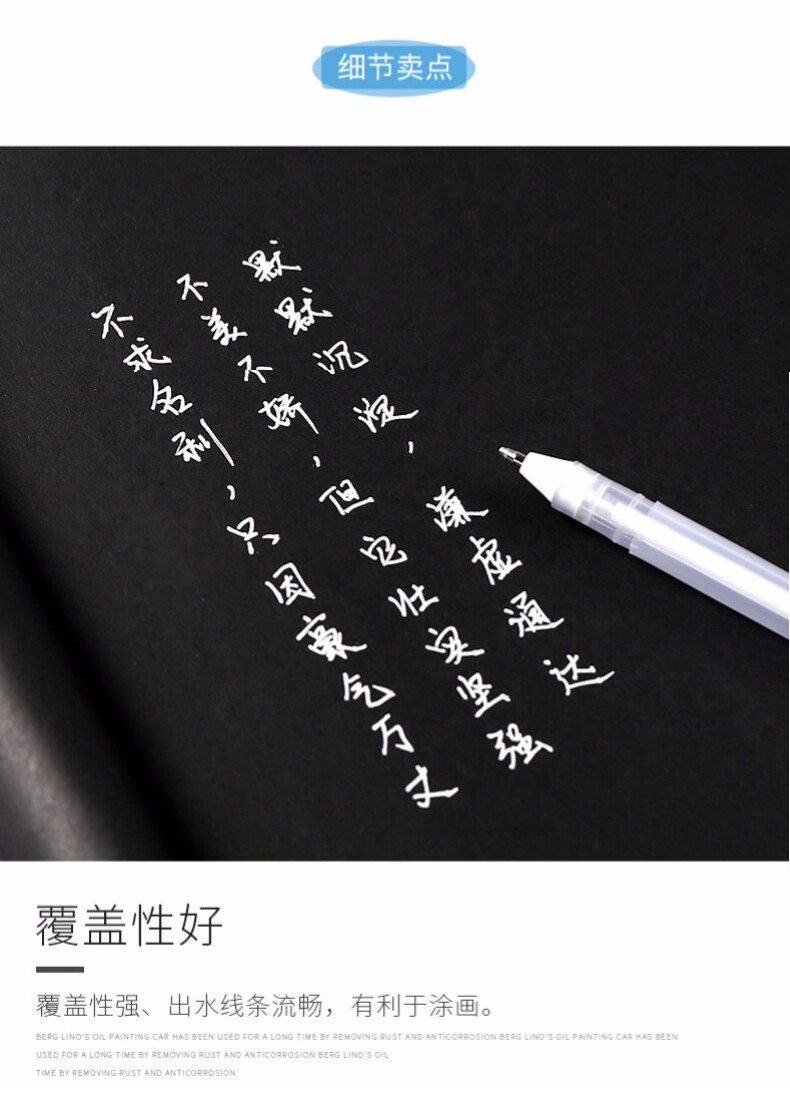 细节卖点
默默沉淀，谦虚通达
不美不娇，但它壮实坚强
不求名利，只因豪气万丈
覆盖性好
覆盖性强、出水线条流畅，有利于涂画。
BERG LINO'S OIL PAINTING CAR HAS BEEN USED FOR A LONG TIME BY REMOVING RUST AND ANTICORROSION BERG LINO'S OIL PAINTING CAR HAS BEEN
USED FOR A LONG TIME BY REMOVING RUST AND ANTICORROSION BERG LINO'S OIL
TIME BY REMOVING RUST AND ANTICORROSION